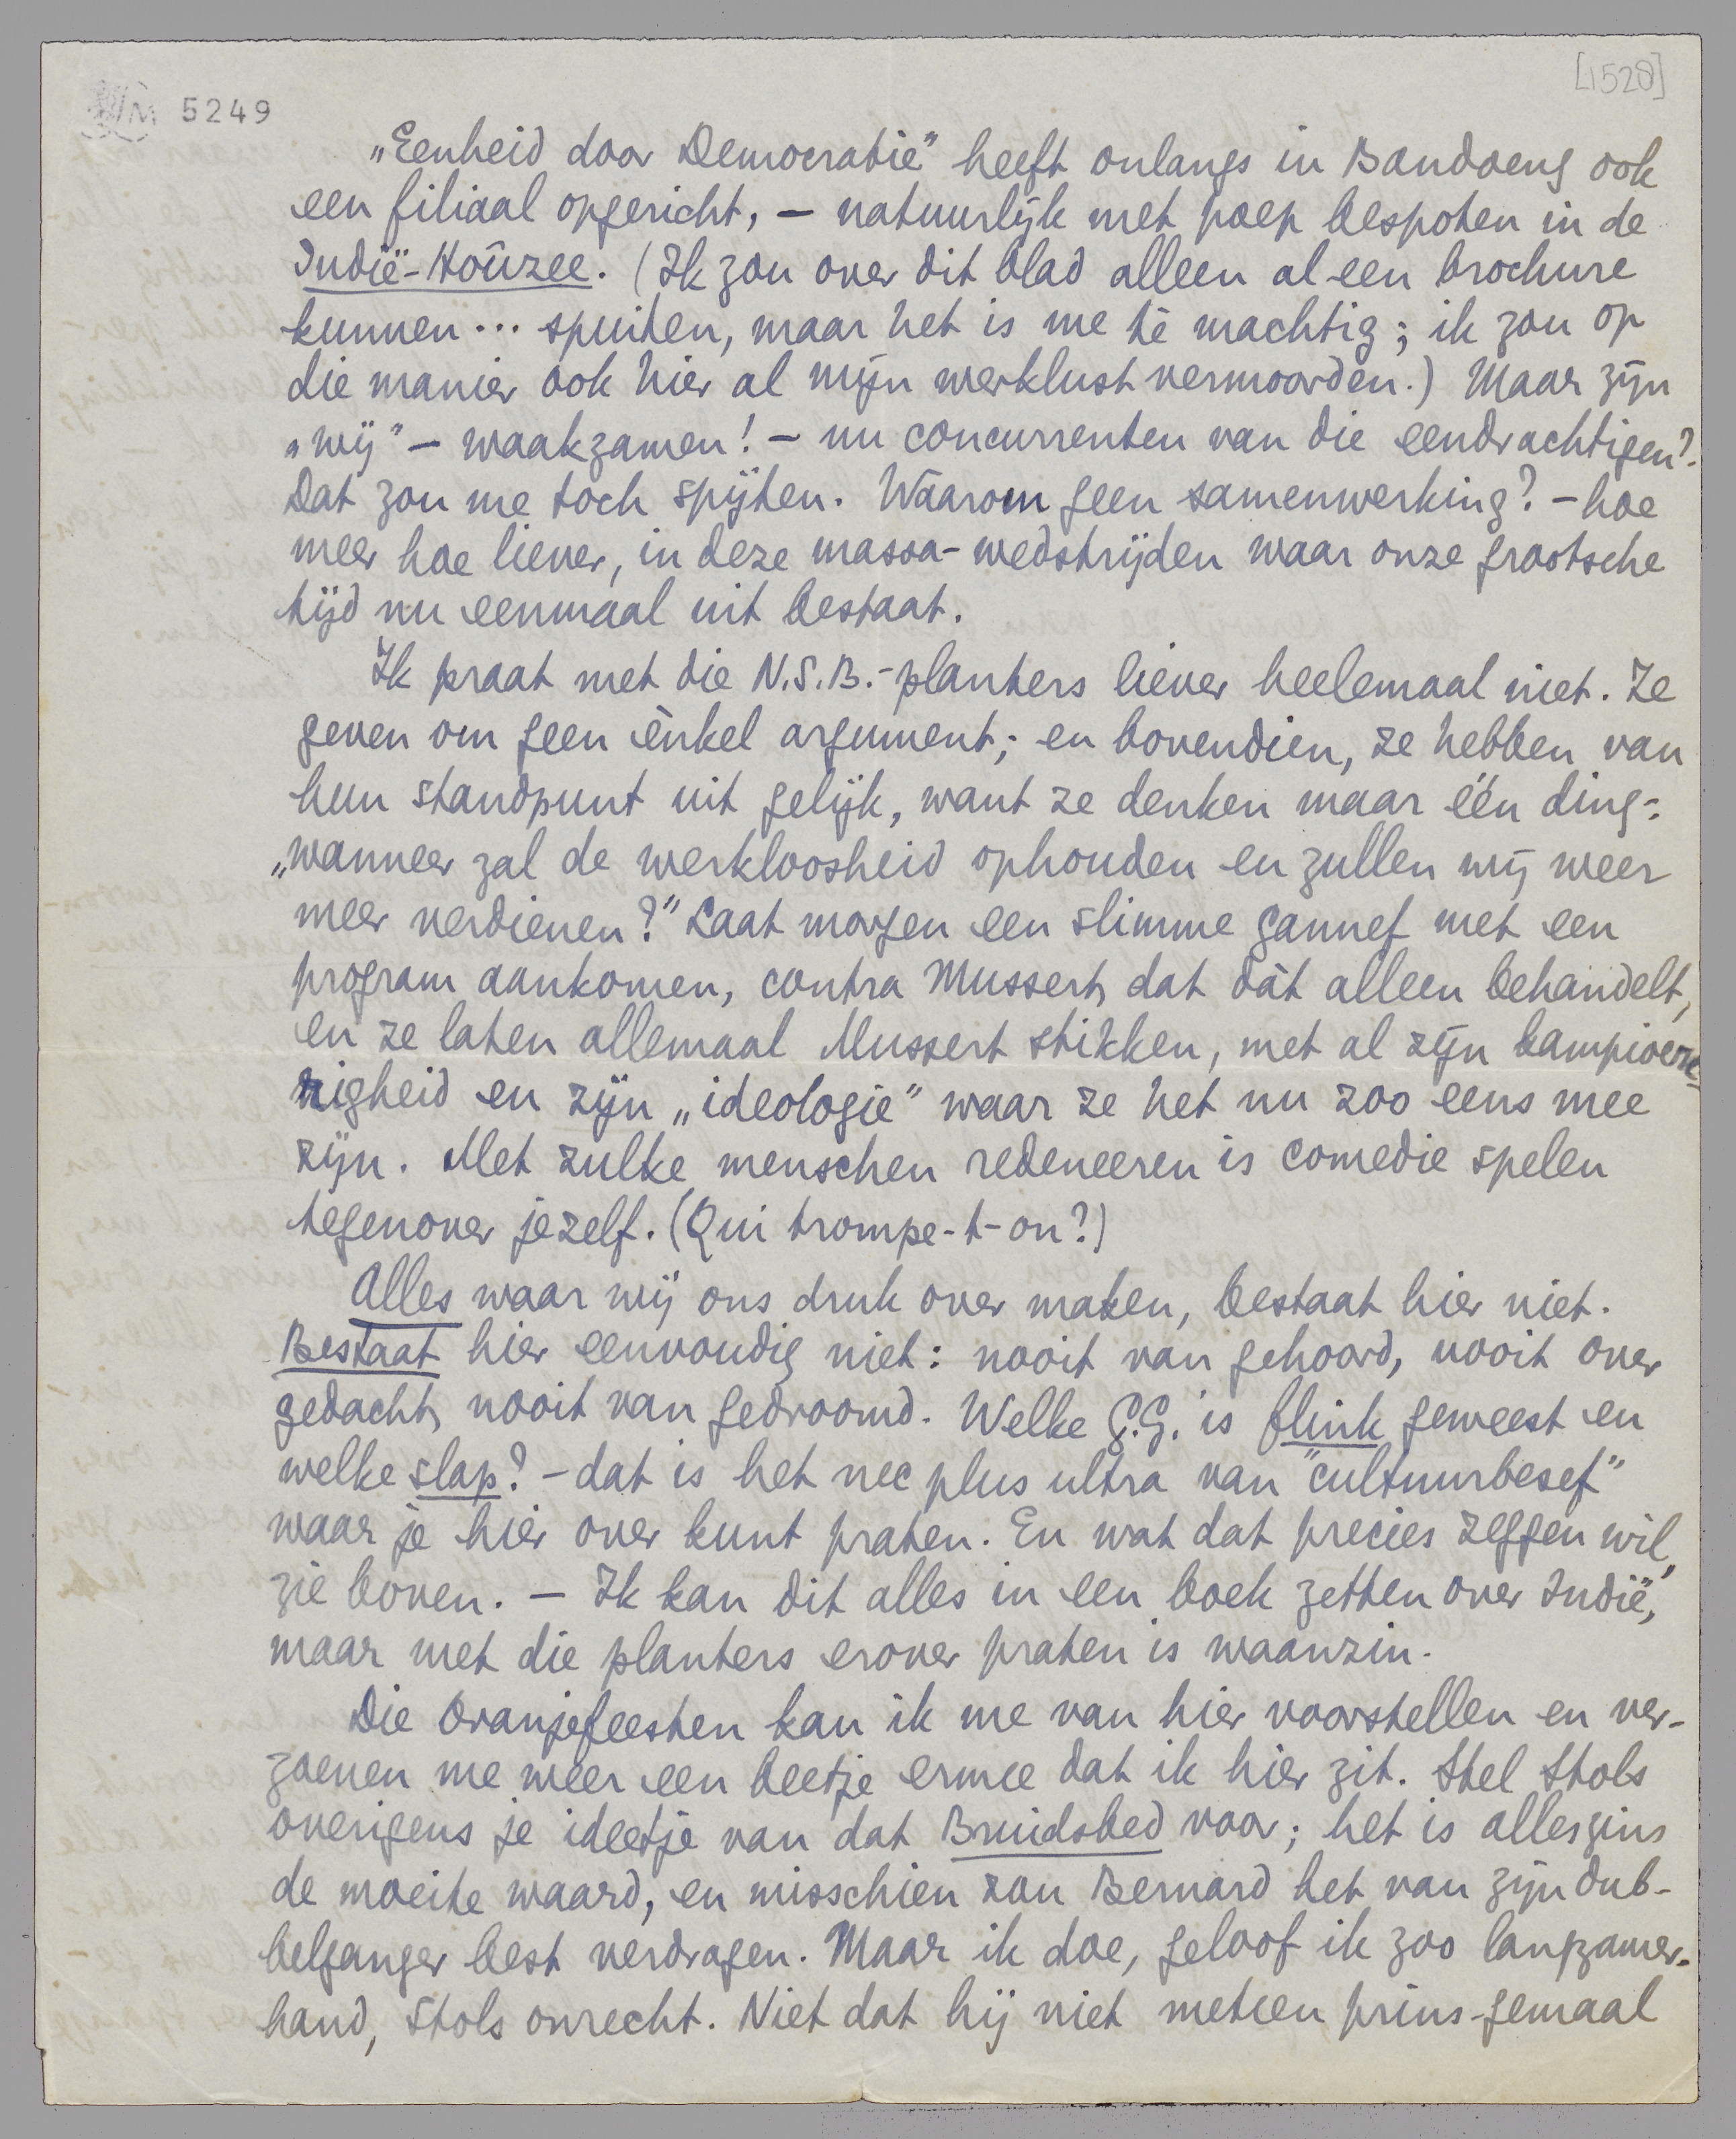 [1528]
5249
„Eenheid door Democratie" heeft onlangs in Bandoeng ook
een filiaal opgericht, — natuurlijk met poep bespoten in de
Indië-Hoûzee. (Ik zou over dit blad alleen al een brochure
kunnen... spuiten, maar het is me té machtig; ik zou op
die manier ook hier al mijn werklust vermoorden.) Maar zijn
„wij" — waakzamen! — nu concurrenten van die eendrachtigen?
Dat zou me toch spijten. Waarom geen samenwerking? — hoe
meer hoe liever, in deze massa-wedstrijden waar onze grootsche
tijd nu eenmaal uit bestaat.
Ik praat met die N.S.B.-planters liever heelemaal niet. Ze
geven om geen ènkel argument; en bovendien, ze hebben van
hun standpunt uit gelijk, want ze denken maar één ding:
„wanneer zal de werkloosheid ophouden en zullen wij weer
meer verdienen?" Laat morgen een slimme gannef met een
program aankomen, contra Mussert, dat dàt alleen behandelt,
en ze laten allemaal Mussert stikken, met al zijn kampioene-
righeid en zijn „ideologie" waar ze het nu zoo eens mee
zijn. Met zulke menschen redeneeren is comedie spelen
tegenover jezelf. (Qui trompe-t-on?)
Alles waar wij ons druk over maken, bestaat hier niet.
Bestaat hier eenvoudig niet: nooit van gehoord, nooit over
gedacht, nooit van gedroomd. Welke G.G. is flink geweest en
welke slap? — dat is het nec plus ultra van "cultuurbesef"
waar je hier over kunt praten. En wat dat precies zeggen wil,
zie boven. — Ik kan dit alles in een boek zetten over Indië,
maar met die planters erover praten is waanzin.
Die Oranjefeesten kan ik me van hier voorstellen en ver-
zoenen me weer een beetje ermee dat ik hier zit. Stel Stols
overigens je ideetje van dat Bruidsbed voor; het is alleszins
de moeite waard, en misschien zou Bernard het van zijn dub-
belganger best verdragen. Maar ik doe, geloof ik zoo langzamer-
hand, Stols onrecht. Niet dat hij niet meteen prins-gemaal